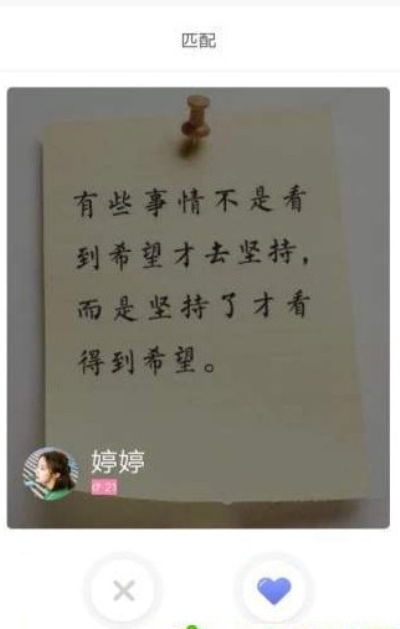 匹配
有些事情不是看
到希望才去坚持，
而是坚持了才看
得到希望。
婷婷
21